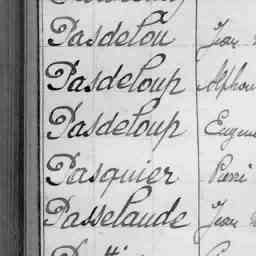 Pasdelou Jean
Pasdeloup Alphon
Pasdeloup Eugene
Pasquier Pierr
Passelaude Jean